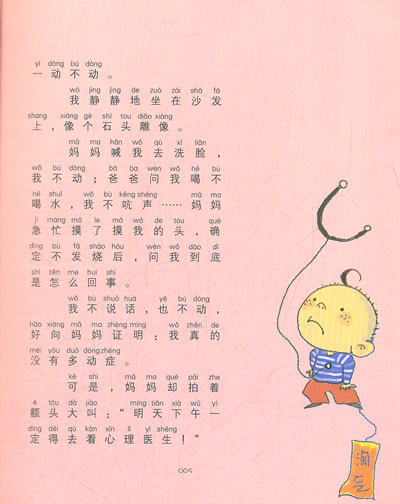 yī dòng bú dòng
一动不动。
wǒ jìng jìng de zuò zài shā fā
我静静地坐在沙发
shang xiàng gè shí tou diāo xiàng
上，像个石头雕像。
mā ma hǎn wǒ qù xǐ liǎn
妈妈喊我去洗脸，
wǒ bú dòng bà ba wèn wǒ hē bù
我不动；爸爸问我喝不
hē shuǐ wǒ bù kēng shēng mā ma
喝水，我不吭声……妈妈
jí máng mō le mō wǒ de tóu què
急忙摸了摸我的头，确
dìng bù fā shāo hòu wèn wǒ dào dǐ
定不发烧后，问我到底
shì zěn me huí shì
是怎么回事。
wǒ bù shuō huà yě bú dòng
我不说话，也不动，
hǎo xiàng mā ma zhèng míng wǒ zhēn de
好向妈妈证明：我真的
méi yǒu duō dòng zhèng
没有多动症。
kě shì mā ma què pāi zhe
可是，妈妈却拍着
é tóu dà jiào míng tiān xià wǔ yí
额头大叫：“明天下午一
dìng děi qù kàn xīn lǐ yī shēng
定得去看心理医生！”
淘
气
005